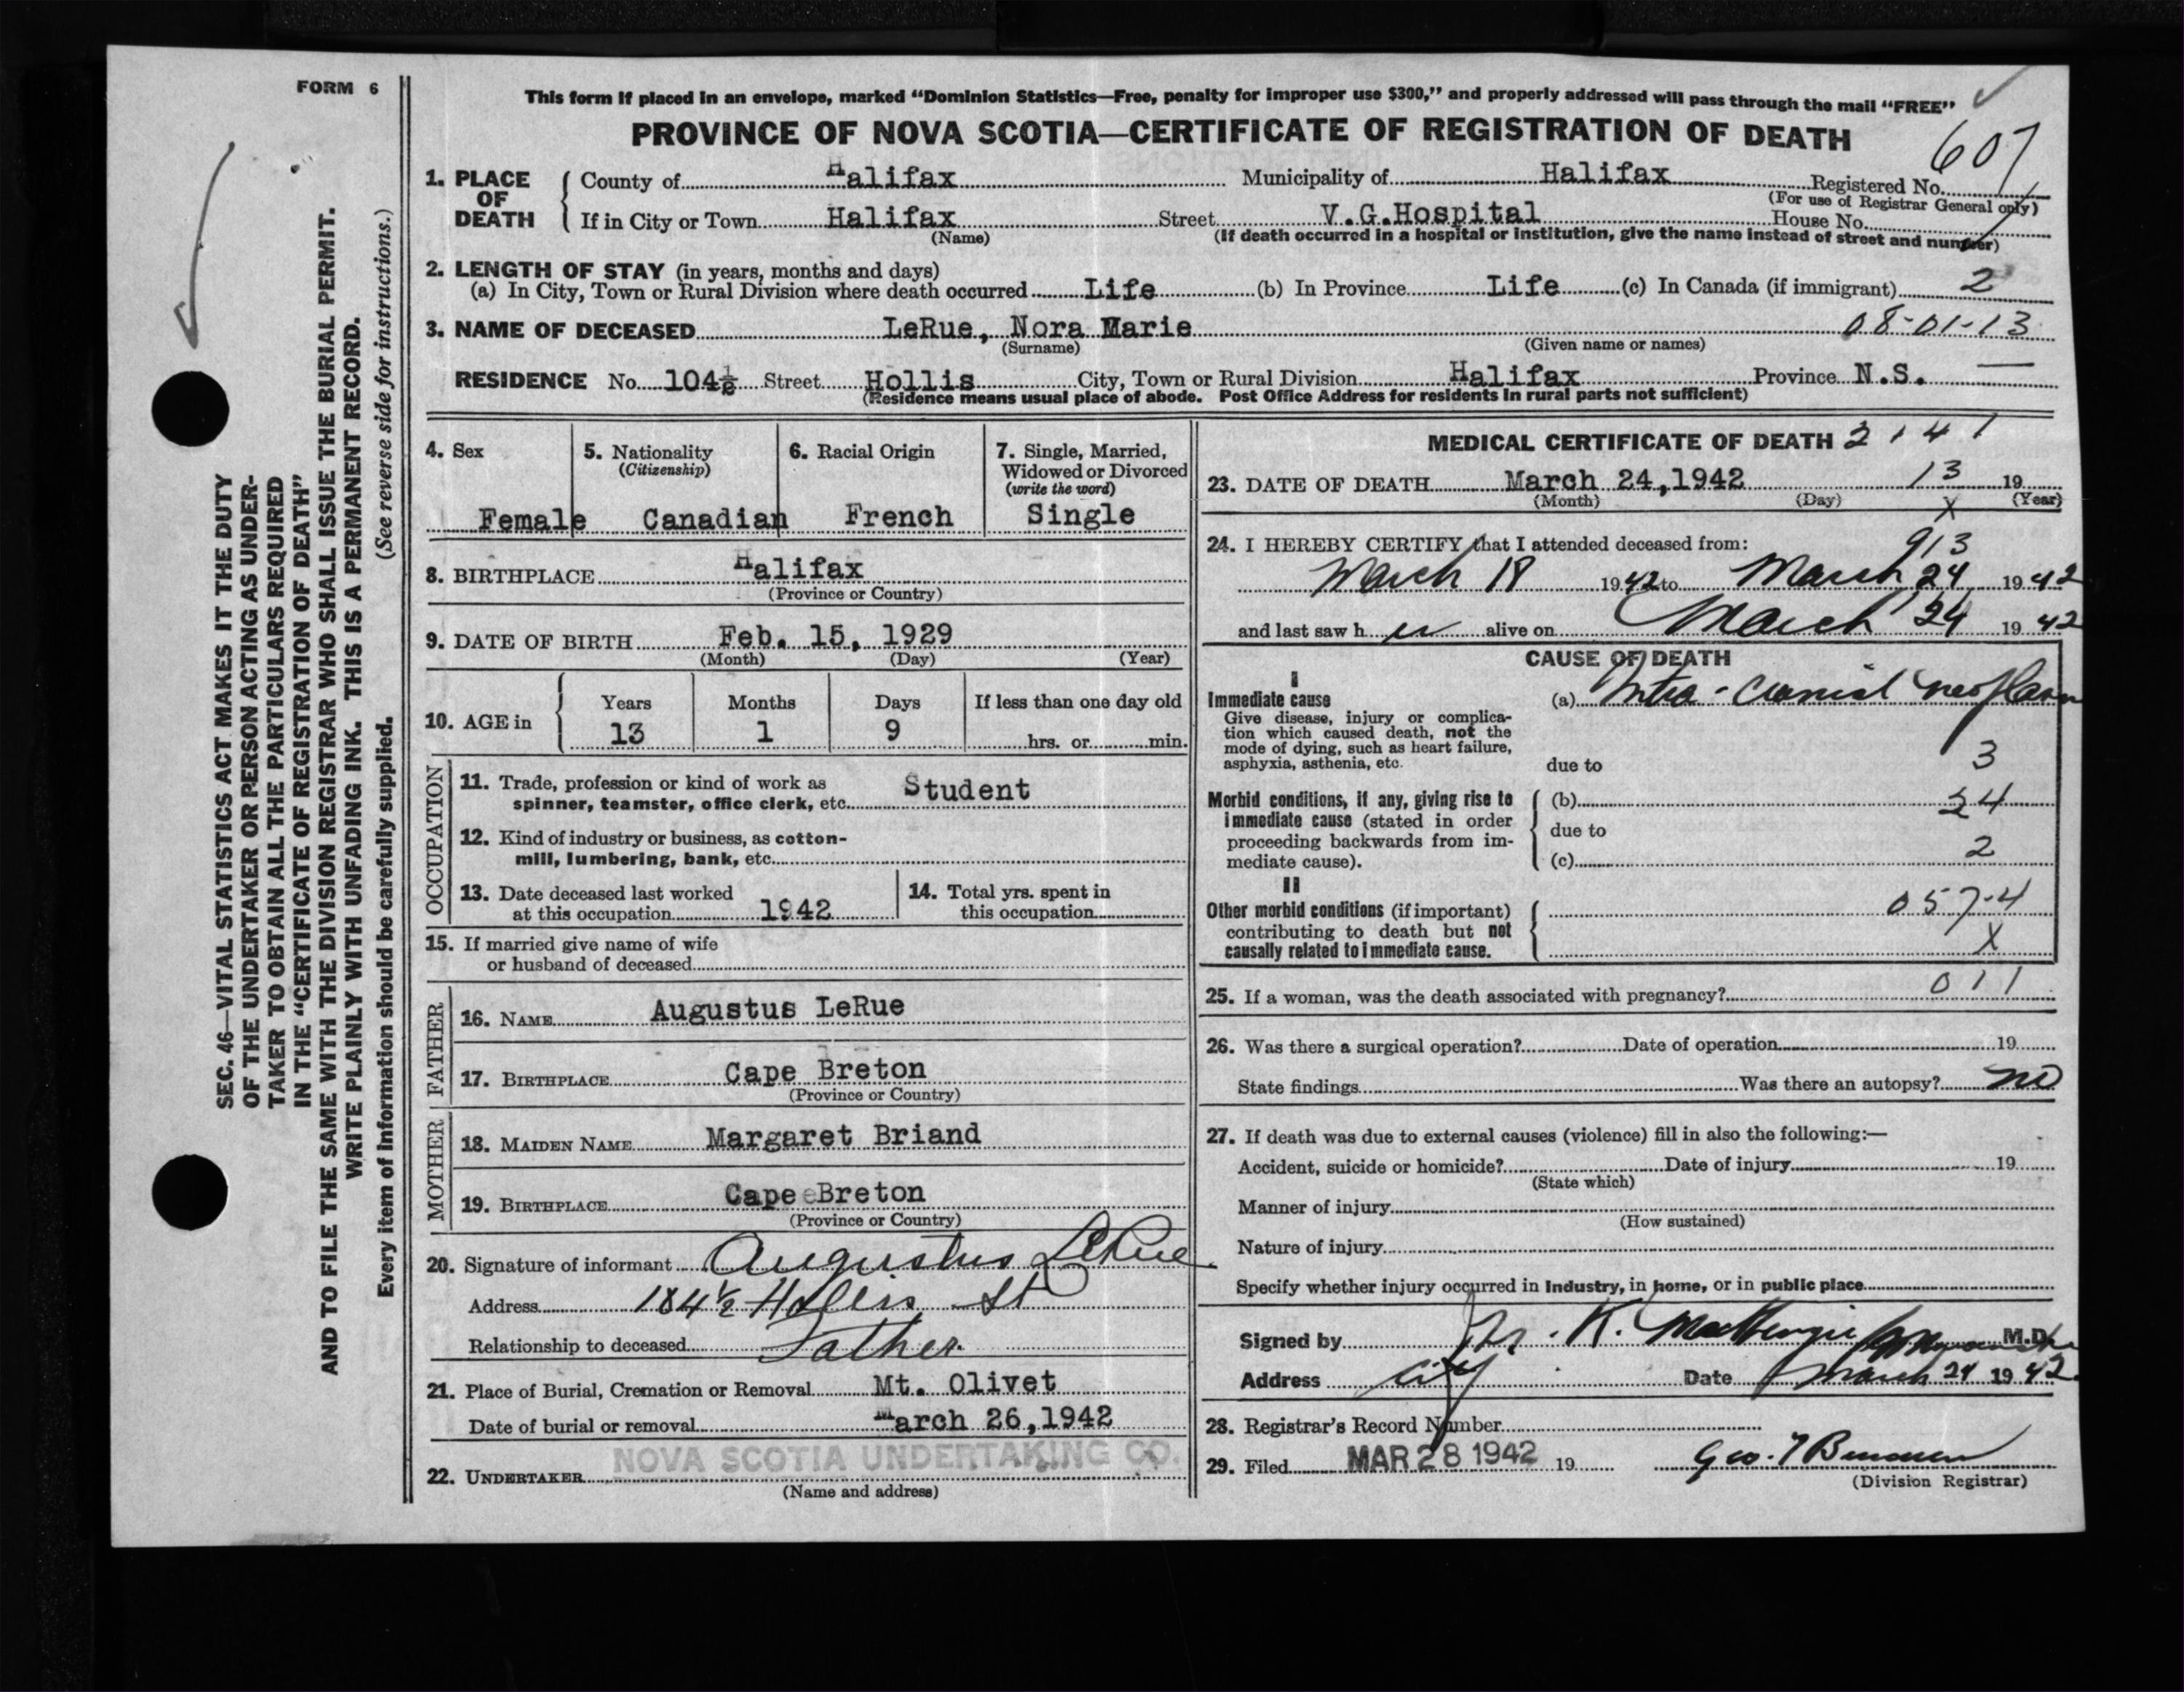 FORM 6
This form if placed in an envelope, marked “Dominion Statistics—Free, penalty for improper use $300,” and properly addressed will pass through the mail “FREE”
PROVINCE OF NOVA SCOTIA—CERTIFICATE OF REGISTRATION OF DEATH
607
1. PLACE OF DEATH County of Halifax Municipality of Halifax Registered No.
(For use of Registrar General only)
If in City or Town Halifax Street V.G.Hospital House No.
(Name) (If death occurred in a hospital or institution, give the name instead of street and number)
2. LENGTH OF STAY (in years, months and days)
(a) In City, Town or Rural Division where death occurred Life (b) In Province Life (c) In Canada (if immigrant) 2
3. NAME OF DECEASED LeRue, Nora Marie 08-01-13
(Surname) (Given name or names)
RESIDENCE No. 104½ Street Hollis City, Town or Rural Division Halifax Province N.S. —
(Residence means usual place of abode. Post Office Address for residents in rural parts not sufficient)
4. Sex
Female
5. Nationality
(Citizenship)
Canadian
6. Racial Origin
French
7. Single, Married,
Widowed or Divorced
(write the word)
Single
8. BIRTHPLACE Halifax
(Province or Country)
9. DATE OF BIRTH Feb. 15, 1929
(Month) (Day) (Year)
10. AGE in
Years Months Days If less than one day old
13 1 9 hrs. or min.
OCCUPATION
11. Trade, profession or kind of work as
spinner, teamster, office clerk, etc. Student
12. Kind of industry or business, as cotton-
mill, lumbering, bank, etc.
13. Date deceased last worked
at this occupation 1942
14. Total yrs. spent in
this occupation
15. If married give name of wife
or husband of deceased
FATHER
16. NAME Augustus LeRue
17. BIRTHPLACE Cape Breton
(Province or Country)
MOTHER
18. MAIDEN NAME Margaret Briand
19. BIRTHPLACE Cape Breton
(Province or Country)
20. Signature of informant Augustus LeRue
Address 184½ Hollis St
Relationship to deceased Father
21. Place of Burial, Cremation or Removal Mt. Olivet
Date of burial or removal March 26,1942
22. UNDERTAKER NOVA SCOTIA UNDERTAKING CO.
(Name and address)
MEDICAL CERTIFICATE OF DEATH 2141
23. DATE OF DEATH March 24,1942 13 19
(Month) (Day) X (Year)
24. I HEREBY CERTIFY that I attended deceased from: 913
March 18 1942 to March 24 1942
and last saw h er alive on March 24 1942
CAUSE OF DEATH
I
Immediate cause (a) Intra-cranial neoplasm
Give disease, injury or complica-
tion which caused death, not the
mode of dying, such as heart failure,
asphyxia, asthenia, etc.
due to 3
Morbid conditions, if any, giving rise to (b) 34
immediate cause (stated in order due to
proceeding backwards from im-
mediate cause). (c) 2
II
Other morbid conditions (if important) 057-4
contributing to death but not
causally related to immediate cause. X
25. If a woman, was the death associated with pregnancy? 011
26. Was there a surgical operation? Date of operation 19
State findings Was there an autopsy? no
27. If death was due to external causes (violence) fill in also the following:—
Accident, suicide or homicide? Date of injury 19
(State which)
Manner of injury
(How sustained)
Nature of injury
Specify whether injury occurred in industry, in home, or in public place
Signed by Dr. K. MacKenzie M.D.
Address City Date March 24 1942
28. Registrar's Record Number
29. Filed MAR 28 1942 19 Geo.
(Division Registrar)
SEC. 46—VITAL STATISTICS ACT MAKES IT THE DUTY
OF THE UNDERTAKER OR PERSON ACTING AS UNDER-
TAKER TO OBTAIN ALL THE PARTICULARS REQUIRED
IN THE “CERTIFICATE OF REGISTRATION OF DEATH”
AND TO FILE THE SAME WITH THE DIVISION REGISTRAR WHO SHALL ISSUE THE BURIAL PERMIT.
WRITE PLAINLY WITH UNFADING INK. THIS IS A PERMANENT RECORD.
Every item of information should be carefully supplied. (See reverse side for instructions.)